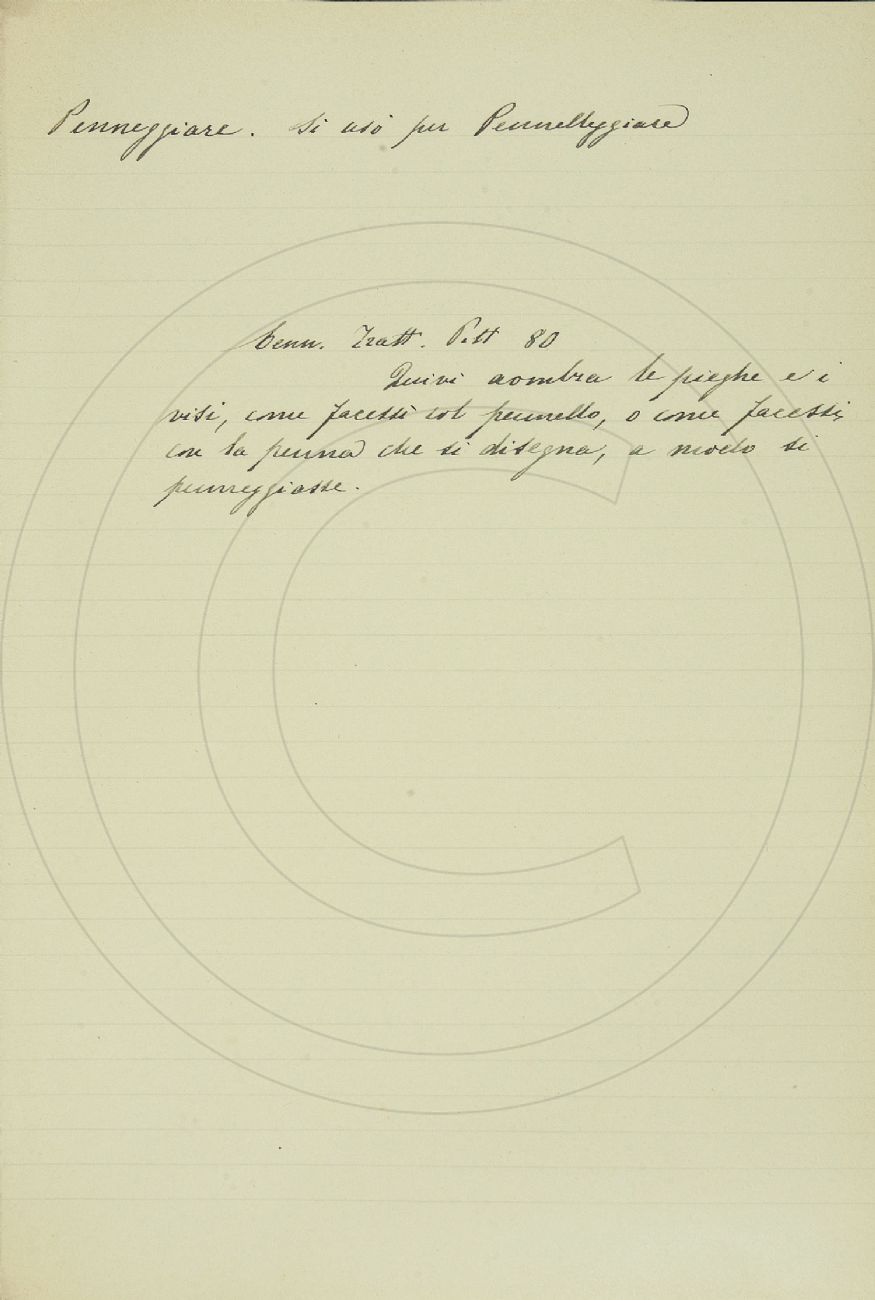 Penneggiare. Si usò per Pennelleggiare
Cenn. Tratt. Pitt 80
Quivi aombra le pieghe e i
visi, come facessi col pennello, o come facessi,
con la penna che si disegna, a modo si
penneggiasse.